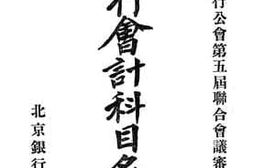 行公會第五屆聯合會議審
行會計科目名
北京銀行